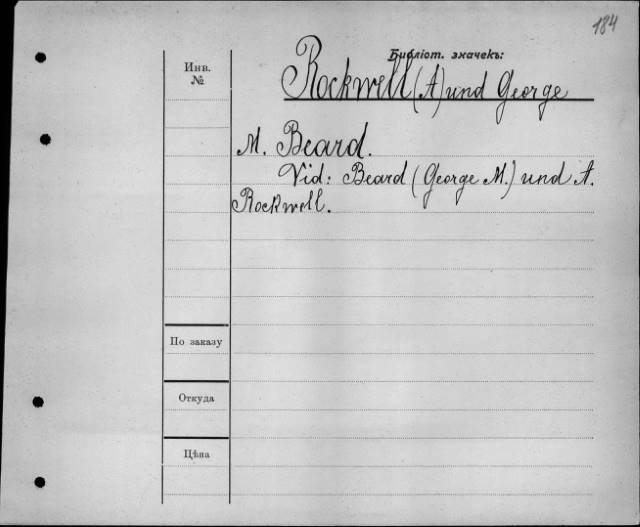 184
Библіот. значекъ:
Инв.
№
Rockwell (A) und George
M. Beard.
Vid: Beard (George M.) und A.
Rockwell.
По заказу
Откуда
Цѣна